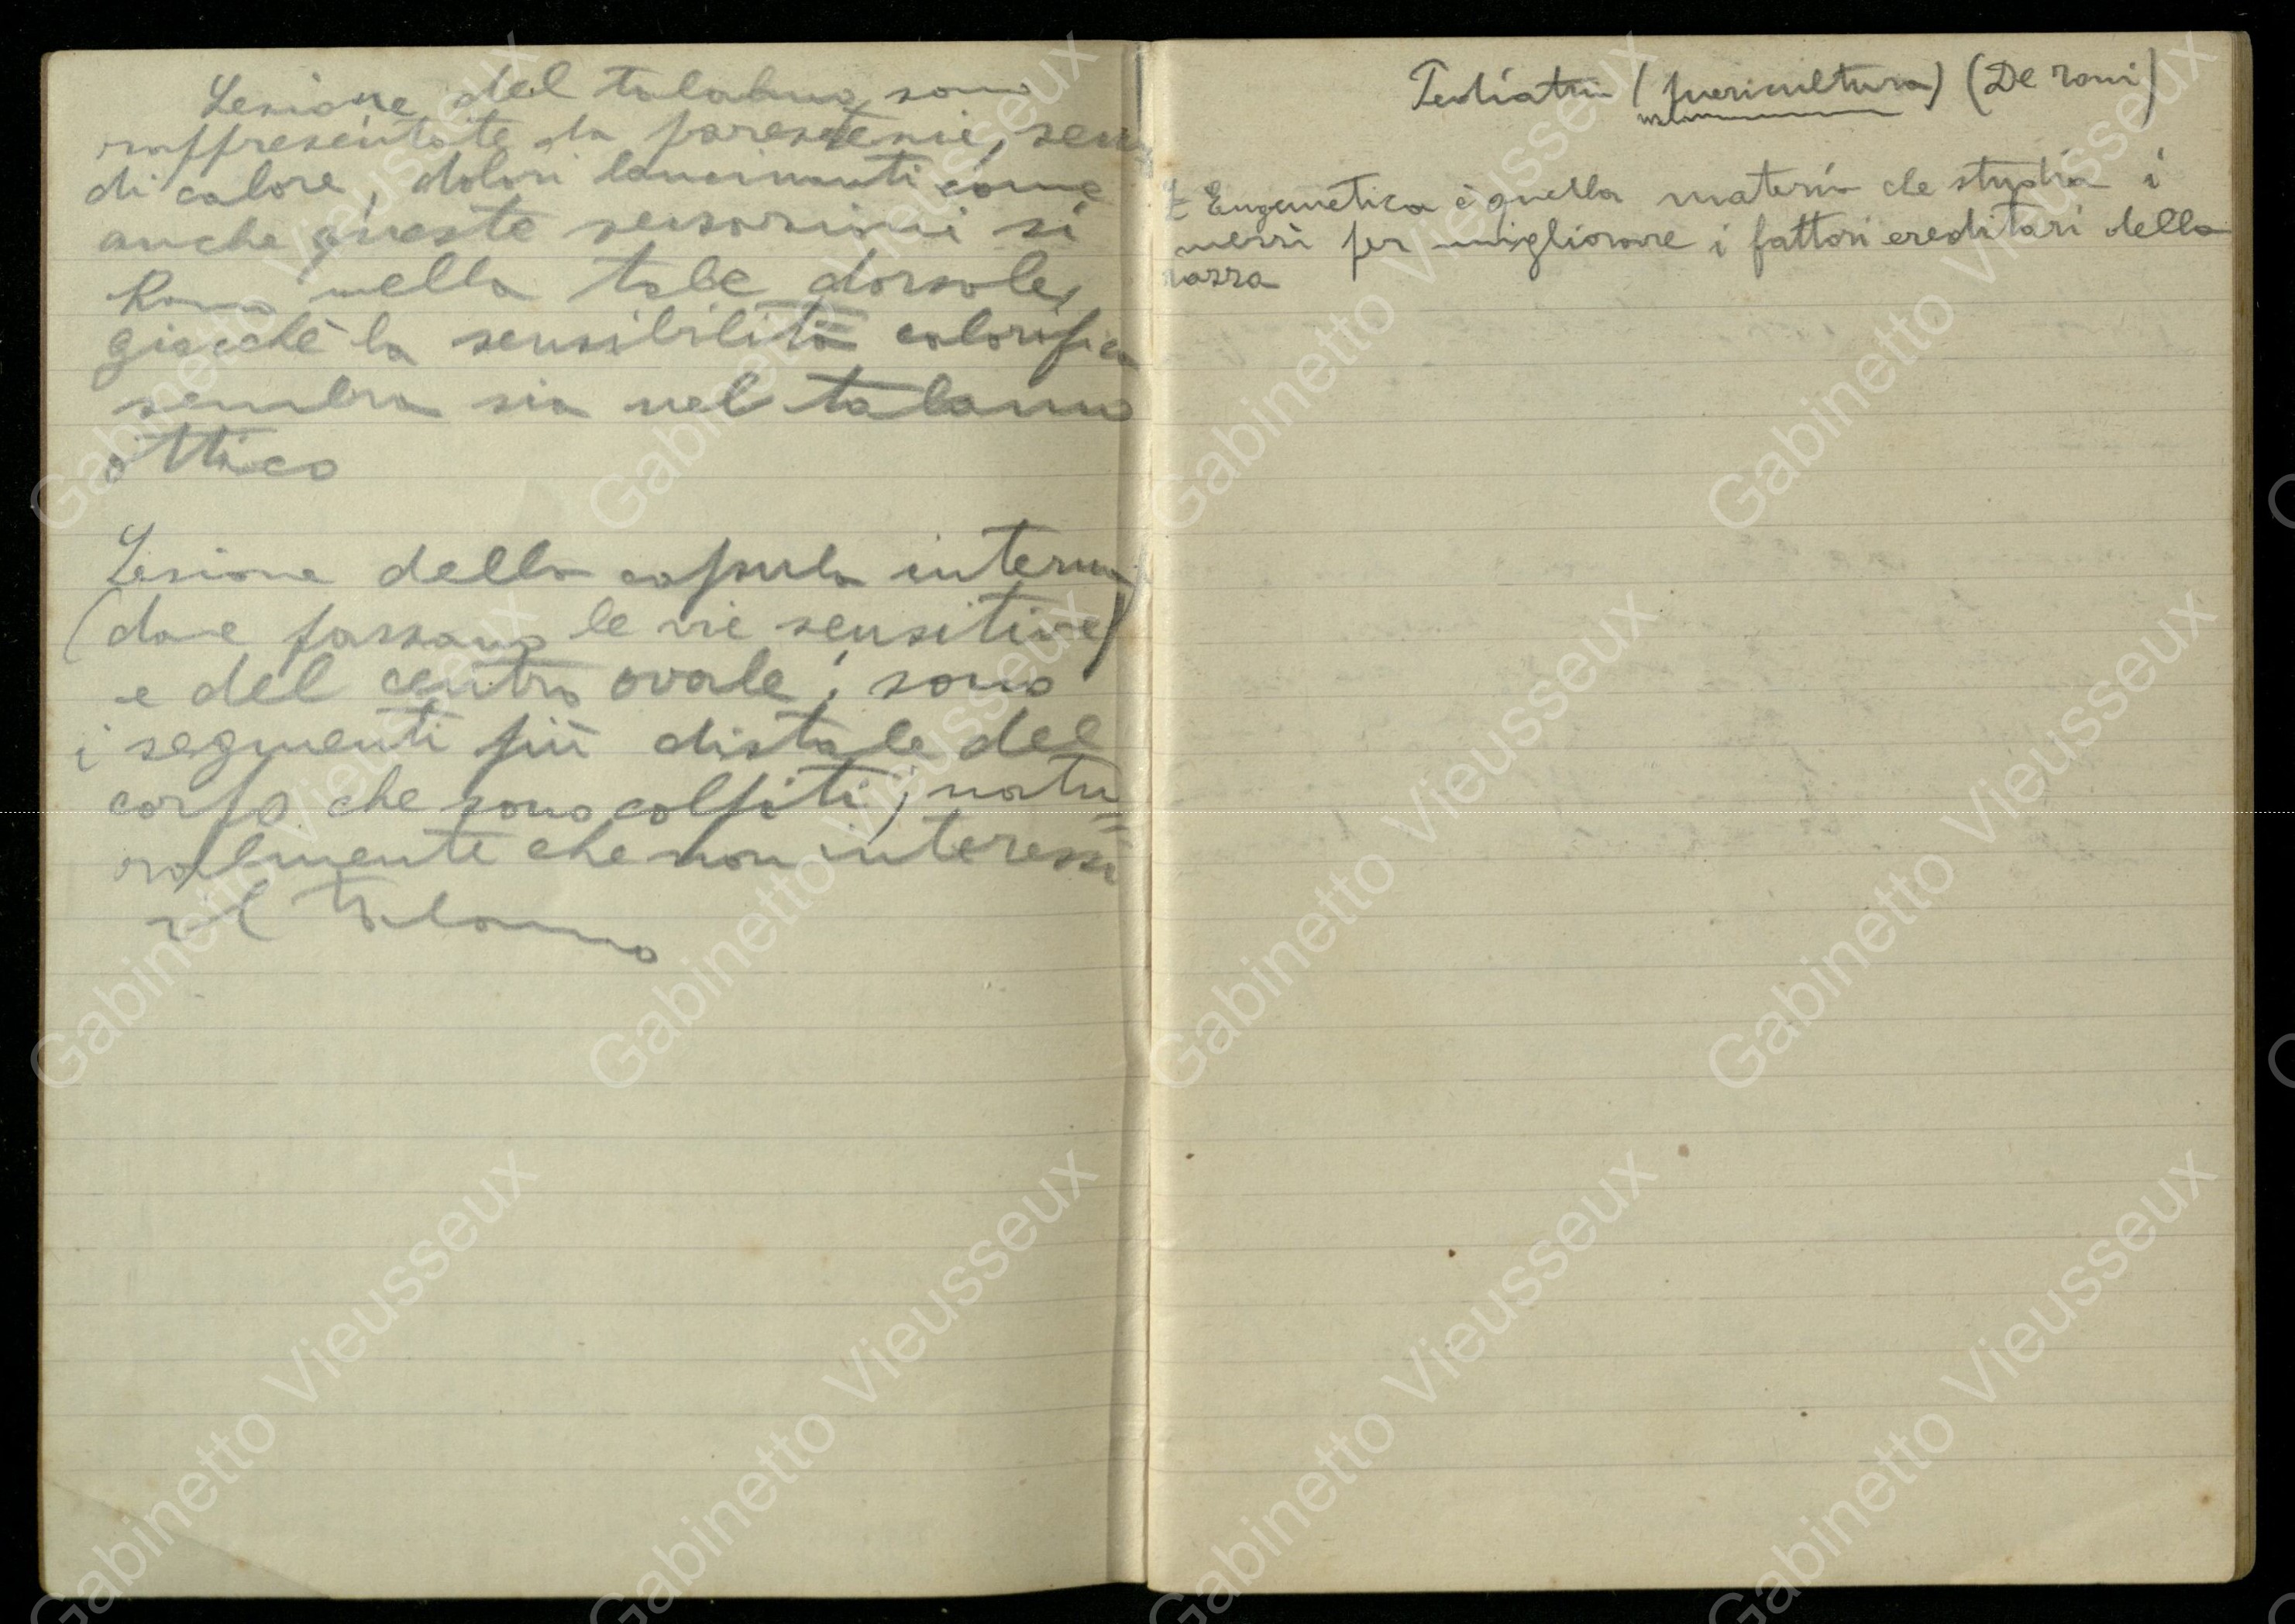 Lesione del talamo sono
rappresentate da parestesie, sens
di calore, dolori lancinanti come
anche queste sensazioni si
hanno nella tabe dorsale,
giacchè la sensibilità calorifica
sembra sia nel talamo
ottico
Lesione della capsula interna
(dove passano le vie sensitive)
e del centro ovale; sono
i segmenti più distale del
corpo che sono colpiti; natu=
ralmente che non interessi
il talamo
Pediatria (puericultura) (De Toni)
Eugenetica è quella materia che studia i
mezzi per migliorare i fattori ereditari della
razza
Gabinetto Vieusseux